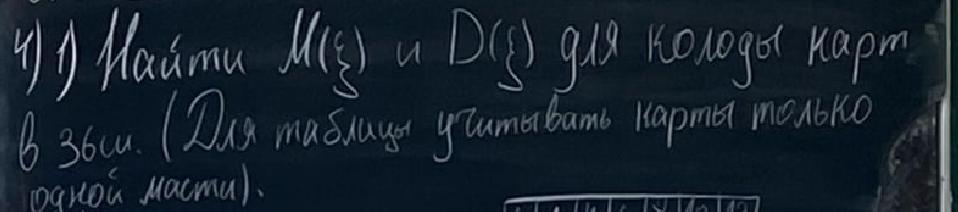 4) 1) Найти M(ξ) и D(ξ) для колоды карт
в 36 ш. (Для таблицы учитывать карты только
одной масти).